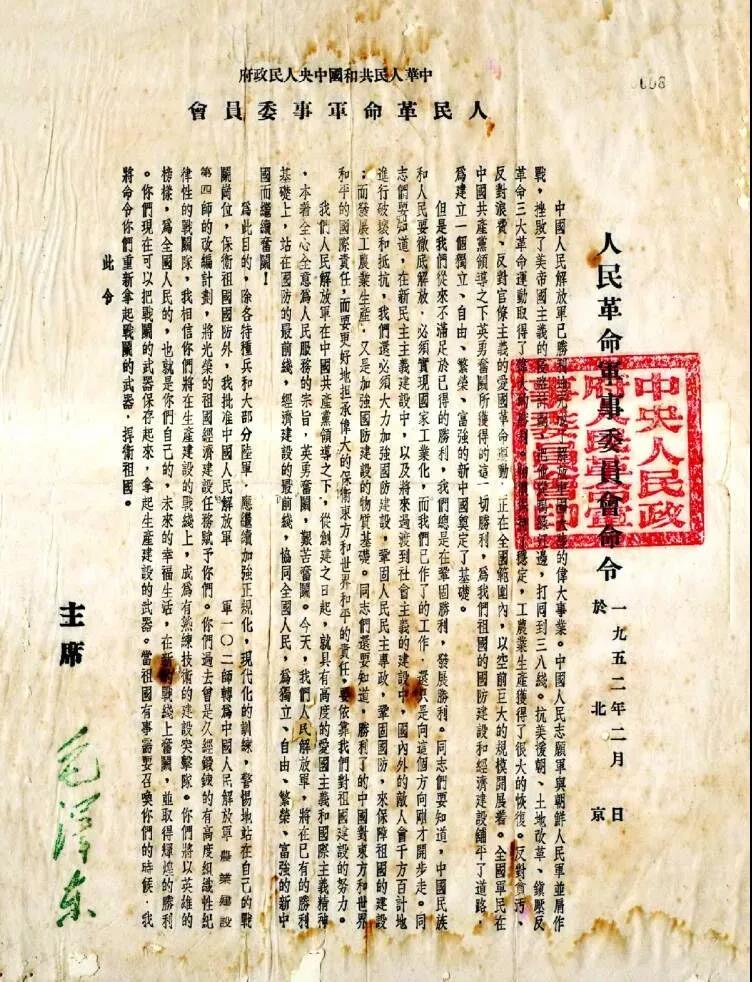 中華人民共和國中央人民政府
人民革命軍事委員會
人民革命軍事委員會命令
一九五二年二月　日
於北京
中央人民政
府人民革命
軍事委員會印
中國人民解放軍已勝利地完成了解放中國大陸的偉大事業。中國人民志願軍與朝鮮人民軍並肩作
戰，挫敗了美帝國主義的侵略計劃，把他從鴨綠江邊，打囘到三八綫。抗美援朝、土地改革、鎮壓反
革命三大革命運動取得了偉大的勝利。穩定，工農業生產獲得了很大的恢復。反對貪污、
反對浪費、反對官僚主義的愛國革命運動，正在全國範圍內，以空前巨大的規模開展着。全國軍民在
中國共產黨領導之下英勇奮鬭所獲得的這一切勝利，爲我們祖國的國防建設和經濟建設鋪平了道路，
爲建立一個獨立、自由、繁榮、富強的新中國奠定了基礎。
但是我們從來不滿足於已得的勝利，我們總是在鞏固勝利，發展勝利。同志們要知道，中國民族
和人民要徹底解放，必須實現國家工業化，而我們已作了的工作，還只是向這個方向剛才開步走。同
志們要知道，在新民主主義建設中，以及將來過渡到社會主義的建設中，國內外的敵人會千方百計地
進行破壞和抵抗，我們還必須大力加強國防建設，鞏固人民民主專政，鞏固國防，來保障祖國的建設
；而發展工農業生產，又是加強國防建設的物質基礎。同志們還要知道，勝利了的中國對東方和世界
和平的國際責任，而要更好地担承偉大的保衛東方和世界和平的責任，要依靠我們對祖國建設的努力。
我們人民解放軍在中國共產黨領導之下，從創建之日起，就具有高度的愛國主義和國際主義精神
，本着全心全意爲人民服務的宗旨，英勇奮鬭，艱苦奮鬭。今天，我們人民解放軍，將在已有的勝利
基礎上，站在國防的最前綫，經濟建設的最前綫，協同全國人民，爲獨立、自由、繁榮、富強的新中
國而繼續奮鬭！
爲此目的，除各特種兵和大部分陸軍，應繼續加強正規化，現代化的訓練，警惕地站在自己的戰
鬭崗位，保衛祖國國防外，我批准中國人民解放軍　　軍一〇二師轉爲中國人民解放軍農業建設
第四師的改編計劃，將光榮的祖國經濟建設任務賦予你們。你們過去曾是久經鍛鍊的有高度組織性紀
律性的戰鬭隊，我相信你們將在生產建設的戰綫上，成爲有熟練技術的建設突擊隊。你們將以英雄的
榜樣，爲全國人民的，也就是你們自己的，未來的幸福生活，在新的戰綫上奮鬭，並取得輝煌的勝利
。你們現在可以把戰鬭的武器保存起來，拿起生產建設的武器。當祖國有事需要召喚你們的時候，我
將命令你們重新拿起戰鬭的武器，捍衛祖國。
此令
主席
毛澤东